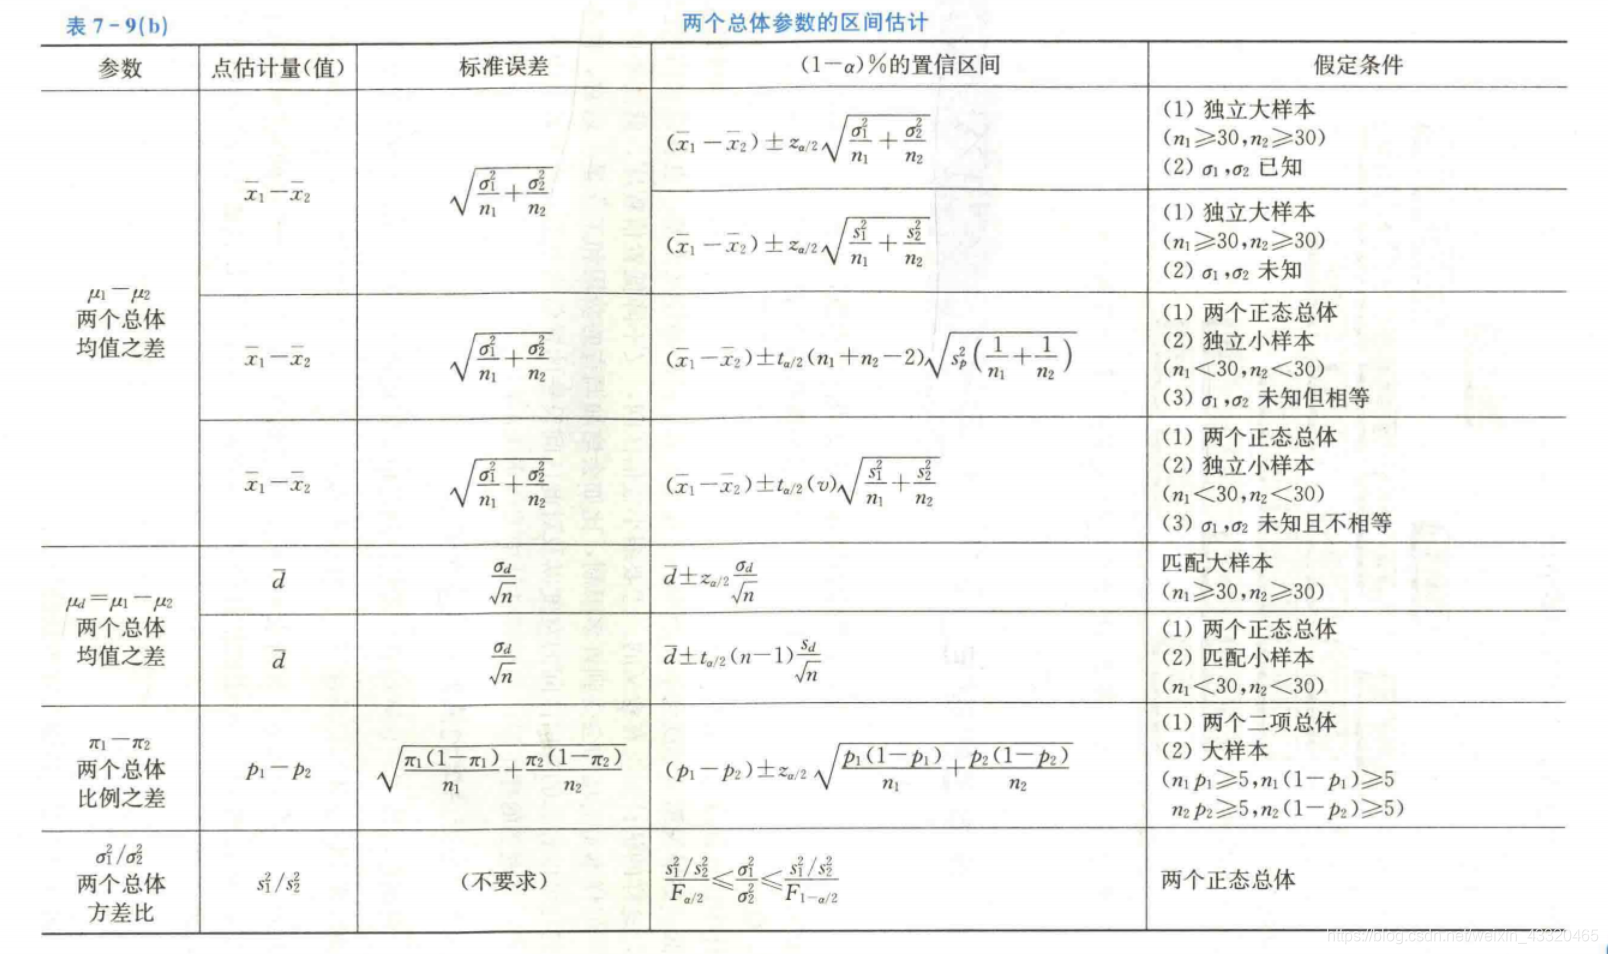 表 7-9(b) 两个总体参数的区间估计
参数 点估计量(值) 标准误差 (1-α)%的置信区间 假定条件
μ₁-μ₂
两个总体
均值之差
x̄₁-x̄₂
√(σ₁²/n₁+σ₂²/n₂)
(x̄₁-x̄₂)±z_{α/2}√(σ₁²/n₁+σ₂²/n₂)
(1) 独立大样本
(n₁≥30,n₂≥30)
(2) σ₁,σ₂ 已知
(x̄₁-x̄₂)±z_{α/2}√(s₁²/n₁+s₂²/n₂)
(1) 独立大样本
(n₁≥30,n₂≥30)
(2) σ₁,σ₂ 未知
x̄₁-x̄₂
√(σ₁²/n₁+σ₂²/n₂)
(x̄₁-x̄₂)±t_{α/2}(n₁+n₂-2)√(s_p²(1/n₁+1/n₂))
(1) 两个正态总体
(2) 独立小样本
(n₁<30,n₂<30)
(3) σ₁,σ₂ 未知但相等
x̄₁-x̄₂
√(σ₁²/n₁+σ₂²/n₂)
(x̄₁-x̄₂)±t_{α/2}(v)√(s₁²/n₁+s₂²/n₂)
(1) 两个正态总体
(2) 独立小样本
(n₁<30,n₂<30)
(3) σ₁,σ₂ 未知且不相等
μ_d=μ₁-μ₂
两个总体
均值之差
d̄
σ_d/√n
d̄±z_{α/2}σ_d/√n
匹配大样本
(n₁≥30,n₂≥30)
d̄
σ_d/√n
d̄±t_{α/2}(n-1)s_d/√n
(1) 两个正态总体
(2) 匹配小样本
(n₁<30,n₂<30)
π₁-π₂
两个总体
比例之差
p₁-p₂
√(π₁(1-π₁)/n₁+π₂(1-π₂)/n₂)
(p₁-p₂)±z_{α/2}√(p₁(1-p₁)/n₁+p₂(1-p₂)/n₂)
(1) 两个二项总体
(2) 大样本
(n₁p₁≥5,n₁(1-p₁)≥5
n₂p₂≥5,n₂(1-p₂)≥5)
σ₁²/σ₂²
两个总体
方差比
s₁²/s₂²
(不要求)
(s₁²/s₂²)/F_{α/2}≤σ₁²/σ₂²≤(s₁²/s₂²)/F_{1-α/2}
两个正态总体
https://blog.csdn.net/weixin_43320465